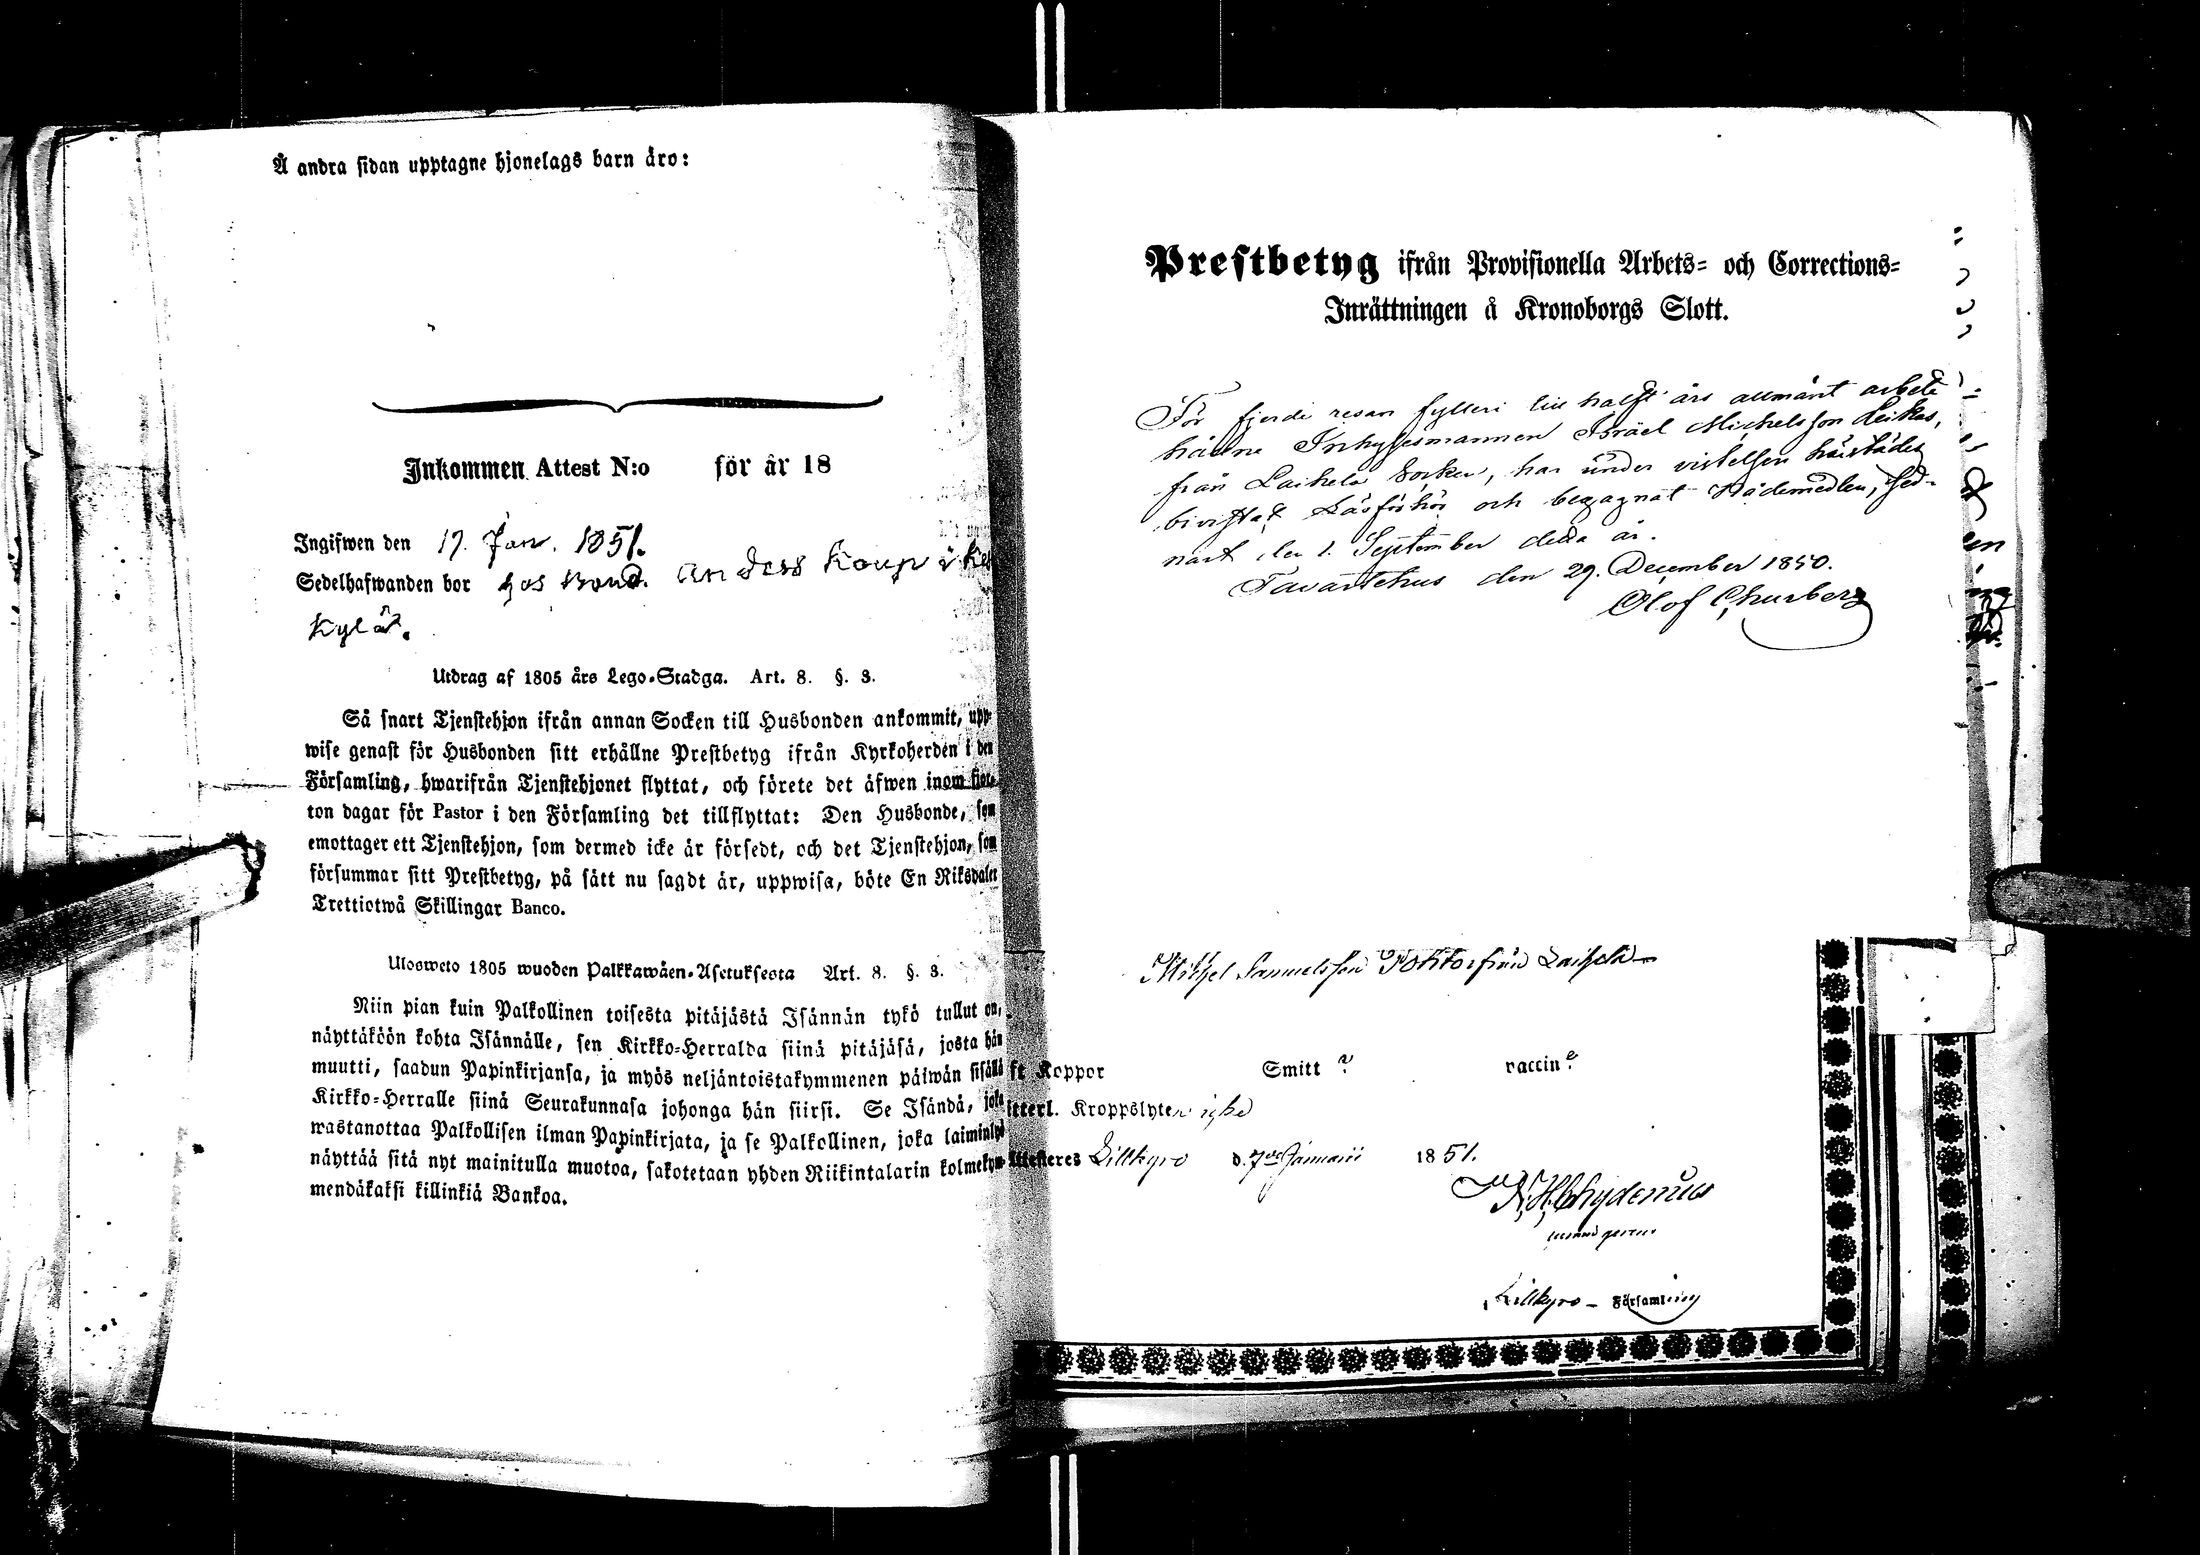 Å andra sidan upptagne hjonelags barn äro:
Inkommen Attest N:o för år 18
Ingifwen den 17. Jan. 1851.
Sedelhafwanden bor hos Bond. Anders Koup i
Kylä.
Utdrag af 1805 års Lego-Stadga. Art. 8. §. 3.
Så snart Tjenstehjon ifrån annan Socken till Husbonden ankommit, upp-
wise genast för Husbonden sitt erhållne Prestbetyg ifrån Kyrkoherden i den
Församling, hwarifrån Tjenstehjonet flyttat, och förete det äfwen inom fjor-
ton dagar för Pastor i den Församling det tillflyttat: Den Husbonde, som
emottager ett Tjenstehjon, som dermed icke är försedt, och det Tjenstehjon, som
försummar sitt Prestbetyg, på sätt nu sagdt är, uppwisa, böte En Riksdaler
Trettiotwå Skillingar Banco.
Ulosweto 1805 wuoden Palkkawäen-Asetuksesta Art. 8. §. 3.
Niin pian kuin Palkollinen toisesta pitäjästä Isännän tykö tullut on,
näyttäköön kohta Isännälle, sen Kirkko-Herralda siinä pitäjäsä, josta hän
muutti, saadun Papinkirjansa, ja myös neljäntoistakymmenen päiwän sisällä
Kirkko-Herralle siinä Seurakunnasa johonga hän siirsi. Se Isändä, joka
wastanottaa Palkollisen ilman Papinkirjata, ja se Palkollinen, joka laiminlyö
näyttää sitä nyt mainitulla muotoa, sakotetaan yhden Riikintalarin kolmekym-
mendäkaksi killinkiä Bankoa.
Prestbetyg ifrån Provisionella Arbets- och Corrections-
Inrättningen å Kronoborgs Slott.
För fjerde resan fylleri till halft års allmänt arbete
hållne Inhysesmannen Israël Michelsson Leikas,
från Laihela Socken, har under vistelsen härstädes
bivistat Läsförhör och begagnat Nådemedlen, sed-
nast den 1. September detta år.
Tavastehus den 29. December 1850.
Olof Churberg
Michel Samuelsson från Laihela
ft Koppor Smitt ? vaccin?
itterl. Kroppslyten icke
Attesteres Lillkyro d. 7de Januarii 1851.
N. H. Chydenius
Lillkyro Församling